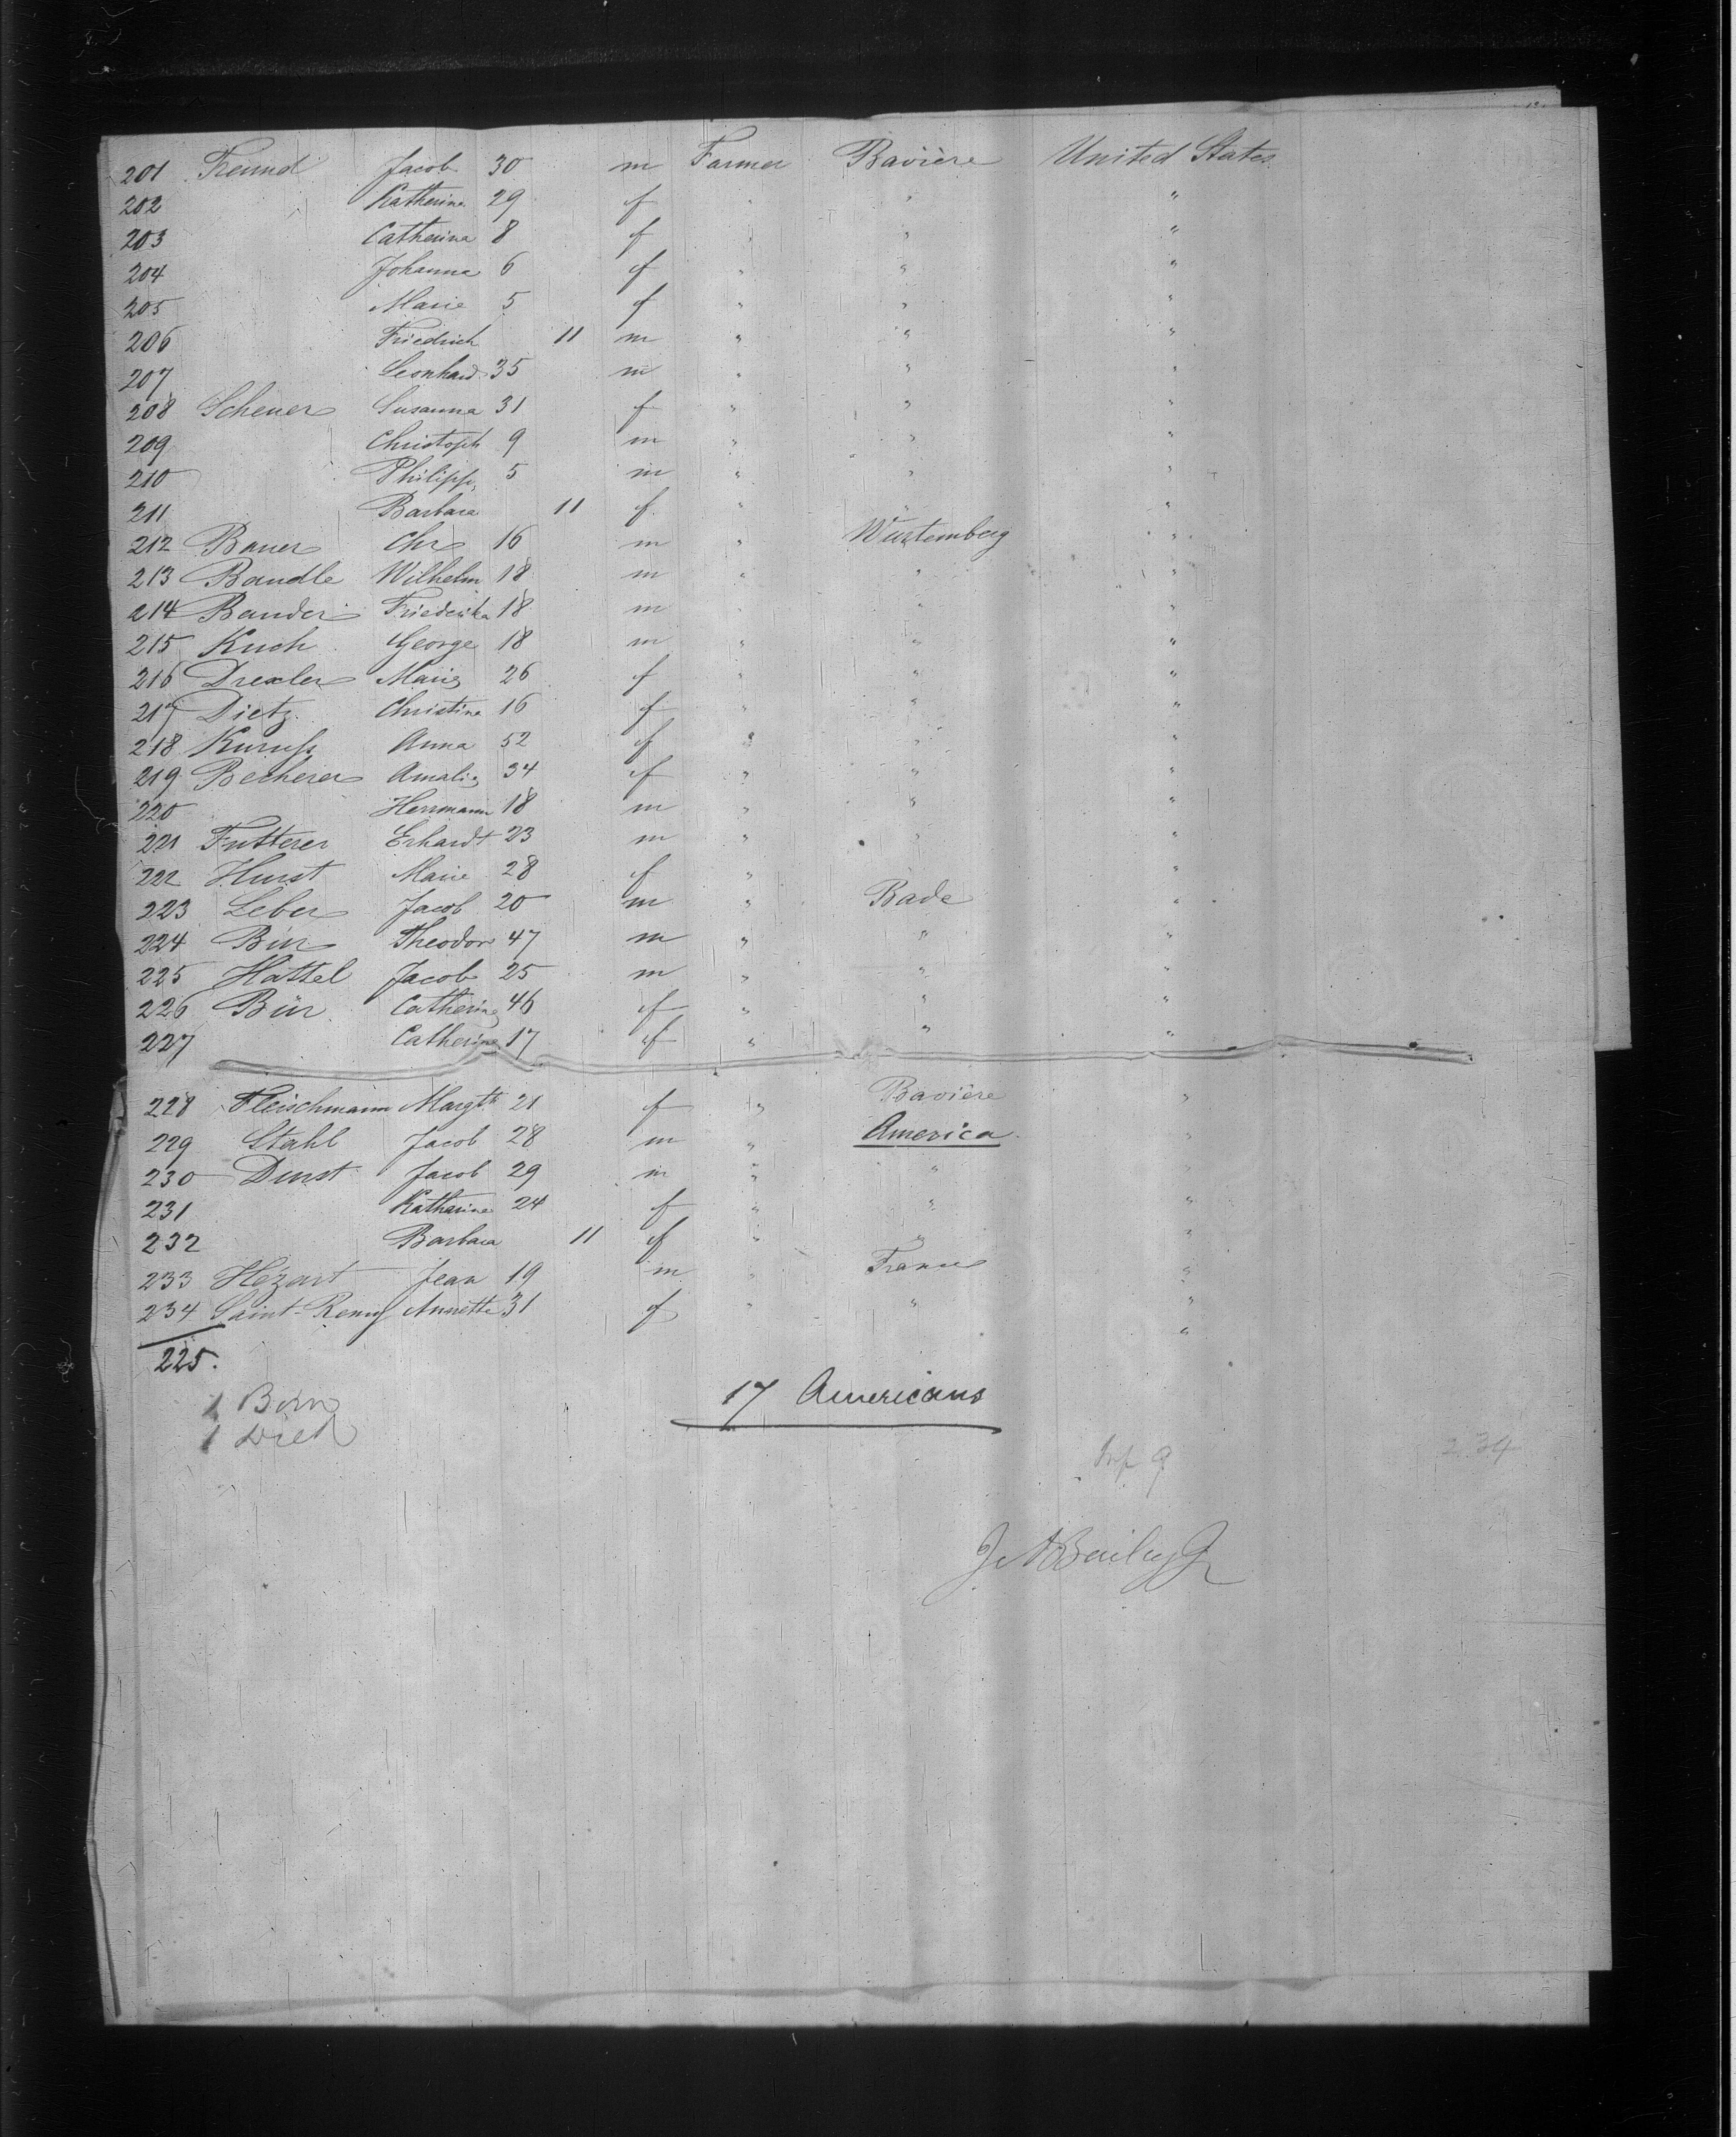 201 Freund Jacob 30 m Farmer Bavière United States
202 Katherina 29 f " " "
203 Catherina 8 f " " "
204 Johanna 6 f " " "
205 Marie 5 f " " "
206 Friedrich 11 m " " "
207 Leonhard 35 m " " "
208 Scheuer Susanna 31 f " " "
209 Christoph 9 m " " "
210 Philipp 5 m " " "
211 Barbara 11 f " " "
212 Bauer Chr 16 m " Wurtemberg "
213 Bandle Wilhelm 18 m " " "
214 Bander Friederika 18 m " " "
215 Kuch George 18 m " " "
216 Drexler Marie 26 f " " "
217 Dietz Christine 16 f " " "
218 Anna 52 f " " "
219 Becherer Amalie 34 f " " "
220 Herrmann 18 m " " "
221 Futterer Erhardt 23 m " " "
222 Hurst Marie 28 f " "
223 Leber Jacob 20 m " Bade "
224 Bür Theodor 47 m " " "
225 Hattel Jacob 25 m " " "
226 Bür Catherina 46 f " " "
227 Catherina 17 f " " "
228 Fleischmann Margth 21 f " Bavière "
229 Stahl Jacob 28 m " America "
230 Durst Jacob 29 m " " "
231 Katharina 24 f " " "
232 Barbara 11 f " " "
233 Hézart Jean 19 m " France "
234 Saint-Remy Annette 31 f " " "
"
225.
1 Born
1 Died
17 Americans
Inf 9 234
J A Bailey Jr